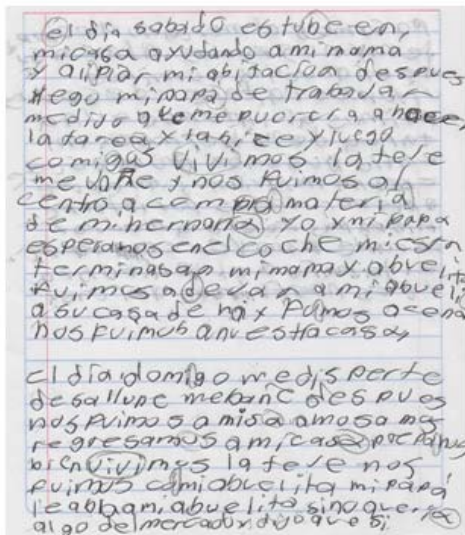 el dia sabado estube en,
micasa ayudando ami mama
y alipiar mi abitacion despues
llego mipapa de trabajar
medijo que me puciera a hacer
la tarea y la hice y luego
comigas vivimos la tele
me bañe y nos fuimos al
centro a comprra materia
de mi hermana yo y mi papa
esperanos en el coche miesn
terminasan mimama y abuelita
fuimos a devar a mi abueli
a su casa de hay fumos a cena
nos fuimos anuestra casa,
el día domigo me disperte
desallune mebañe despues
nos fuimos amisa amosa mos
regresamos a mi casa
bien vivimos la tele nos
fuimos cami abuelita mi papá
le abla ami abuelita sinoqueria
algo del mercado y dijo que si